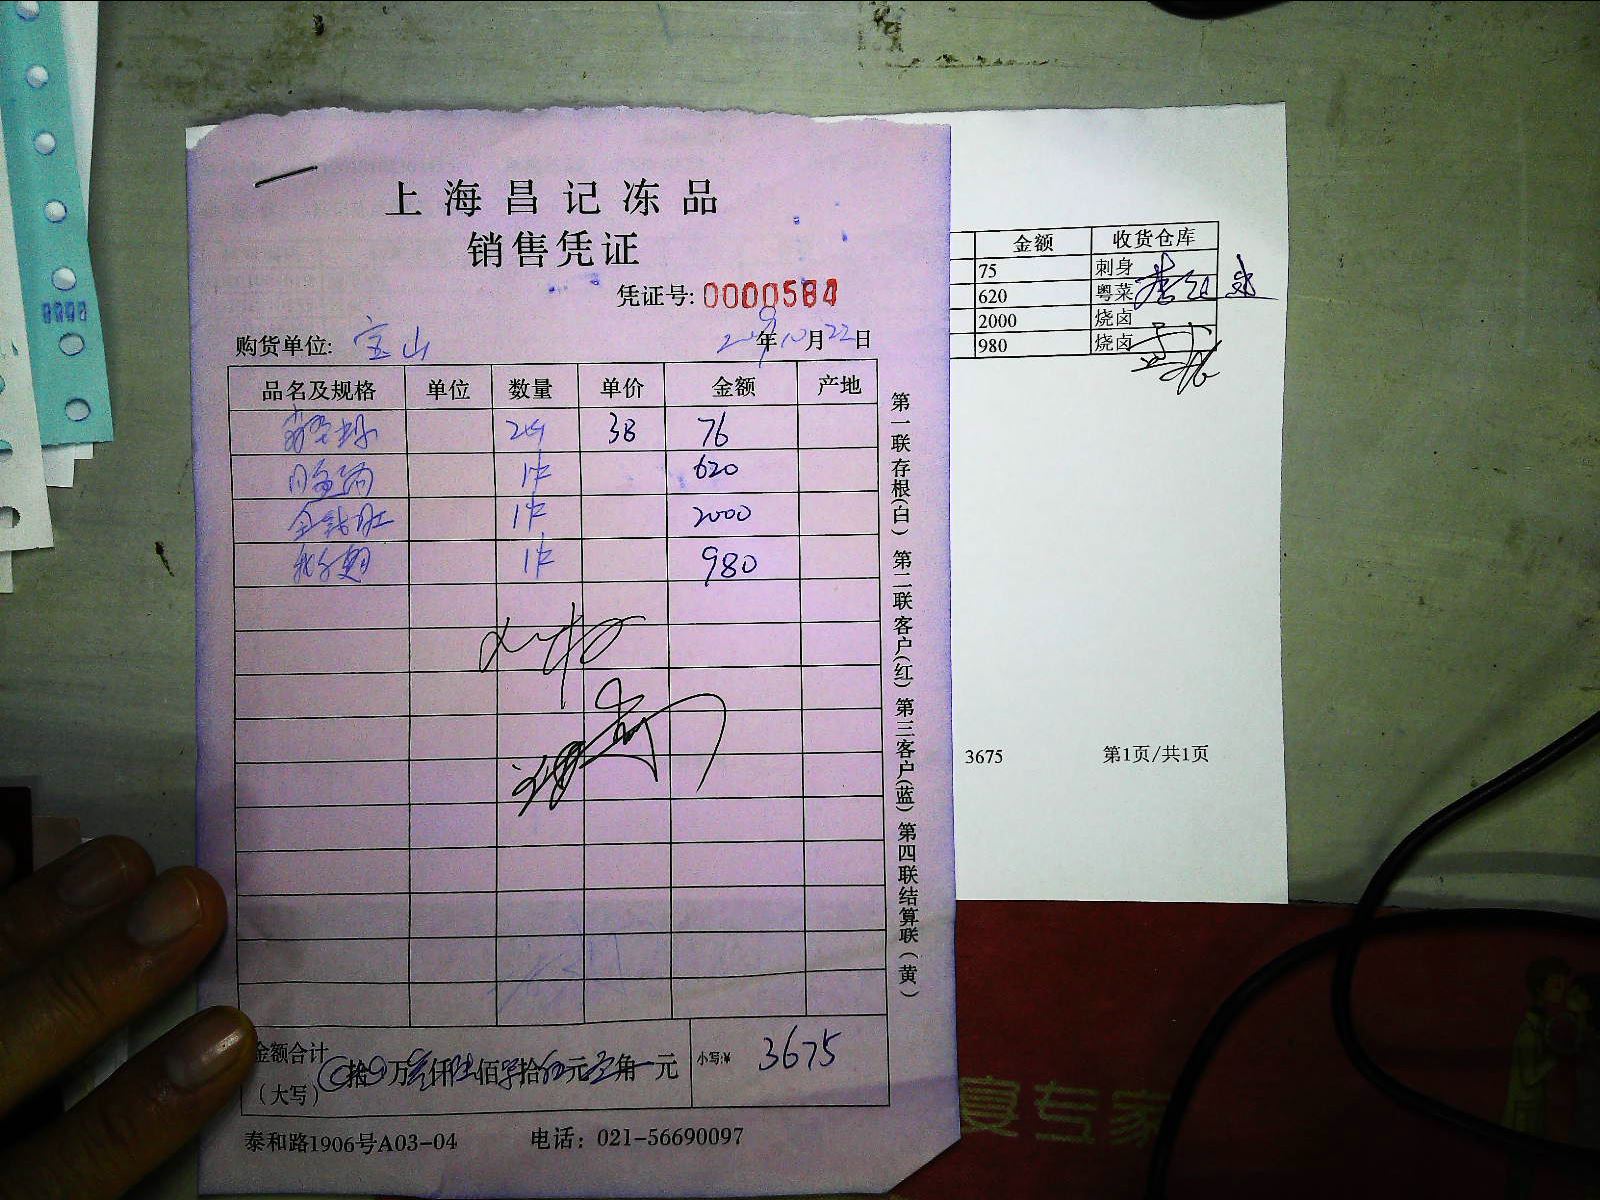 上海昌记冻品
销售凭证
凭证号: 0000584
购货单位: 宝山 2019年10月22日
品名及规格 单位 数量 单价 金额 产地
38 76
1件 620
金钱肚 1件 2000
1件 980
第一联存根(白) 第二联客户(红) 第三客户(蓝) 第四联结算联(黄)
金额合计
(大写) 拾 万 叁仟陆佰 拾伍元 角 元 小写:¥ 3675
泰和路1906号A03-04 电话: 021-56690097
金额 收货仓库
75 刺身
620 粤菜
2000 烧卤
980 烧卤
3675 第1页/共1页
宴专家